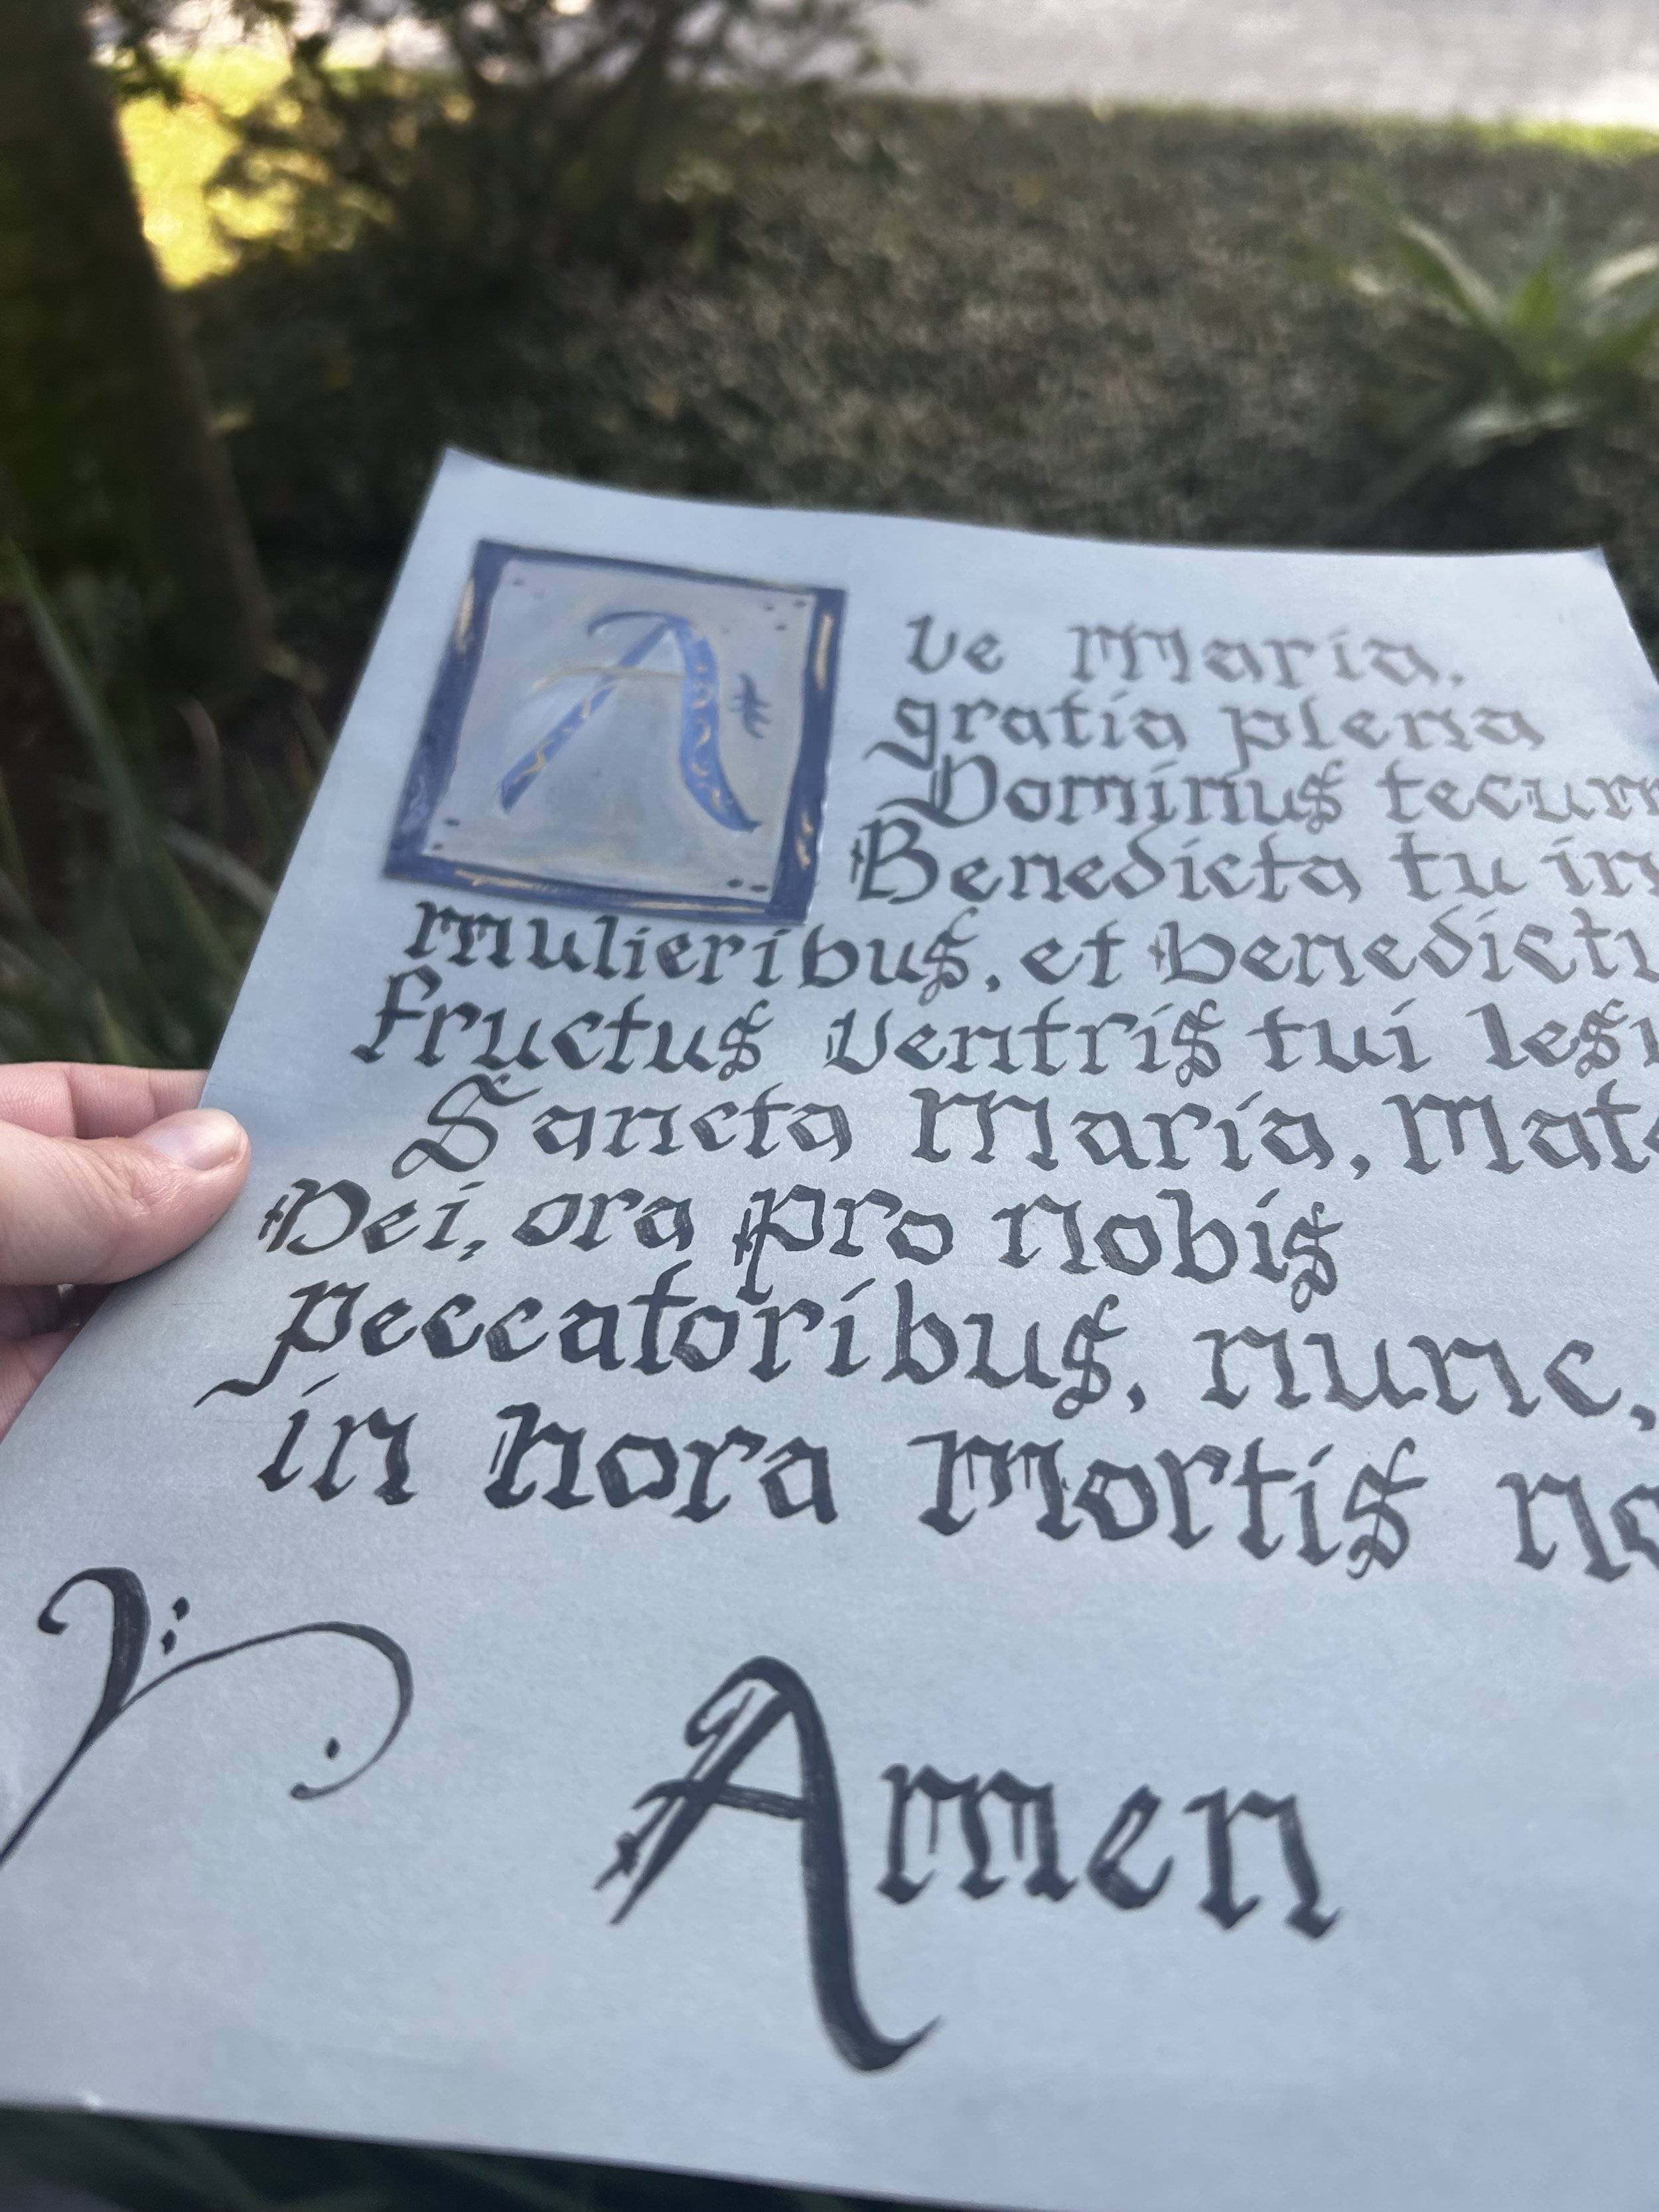 Ave Maria,
gratia plena
Dominus tecum
Benedicta tu in
mulieribus, et benedictu
fructus ventris tui Iesu
Sancta Maria, Mate
Dei, ora pro nobis
peccatoribus, nunc,
in hora mortis no
Amen